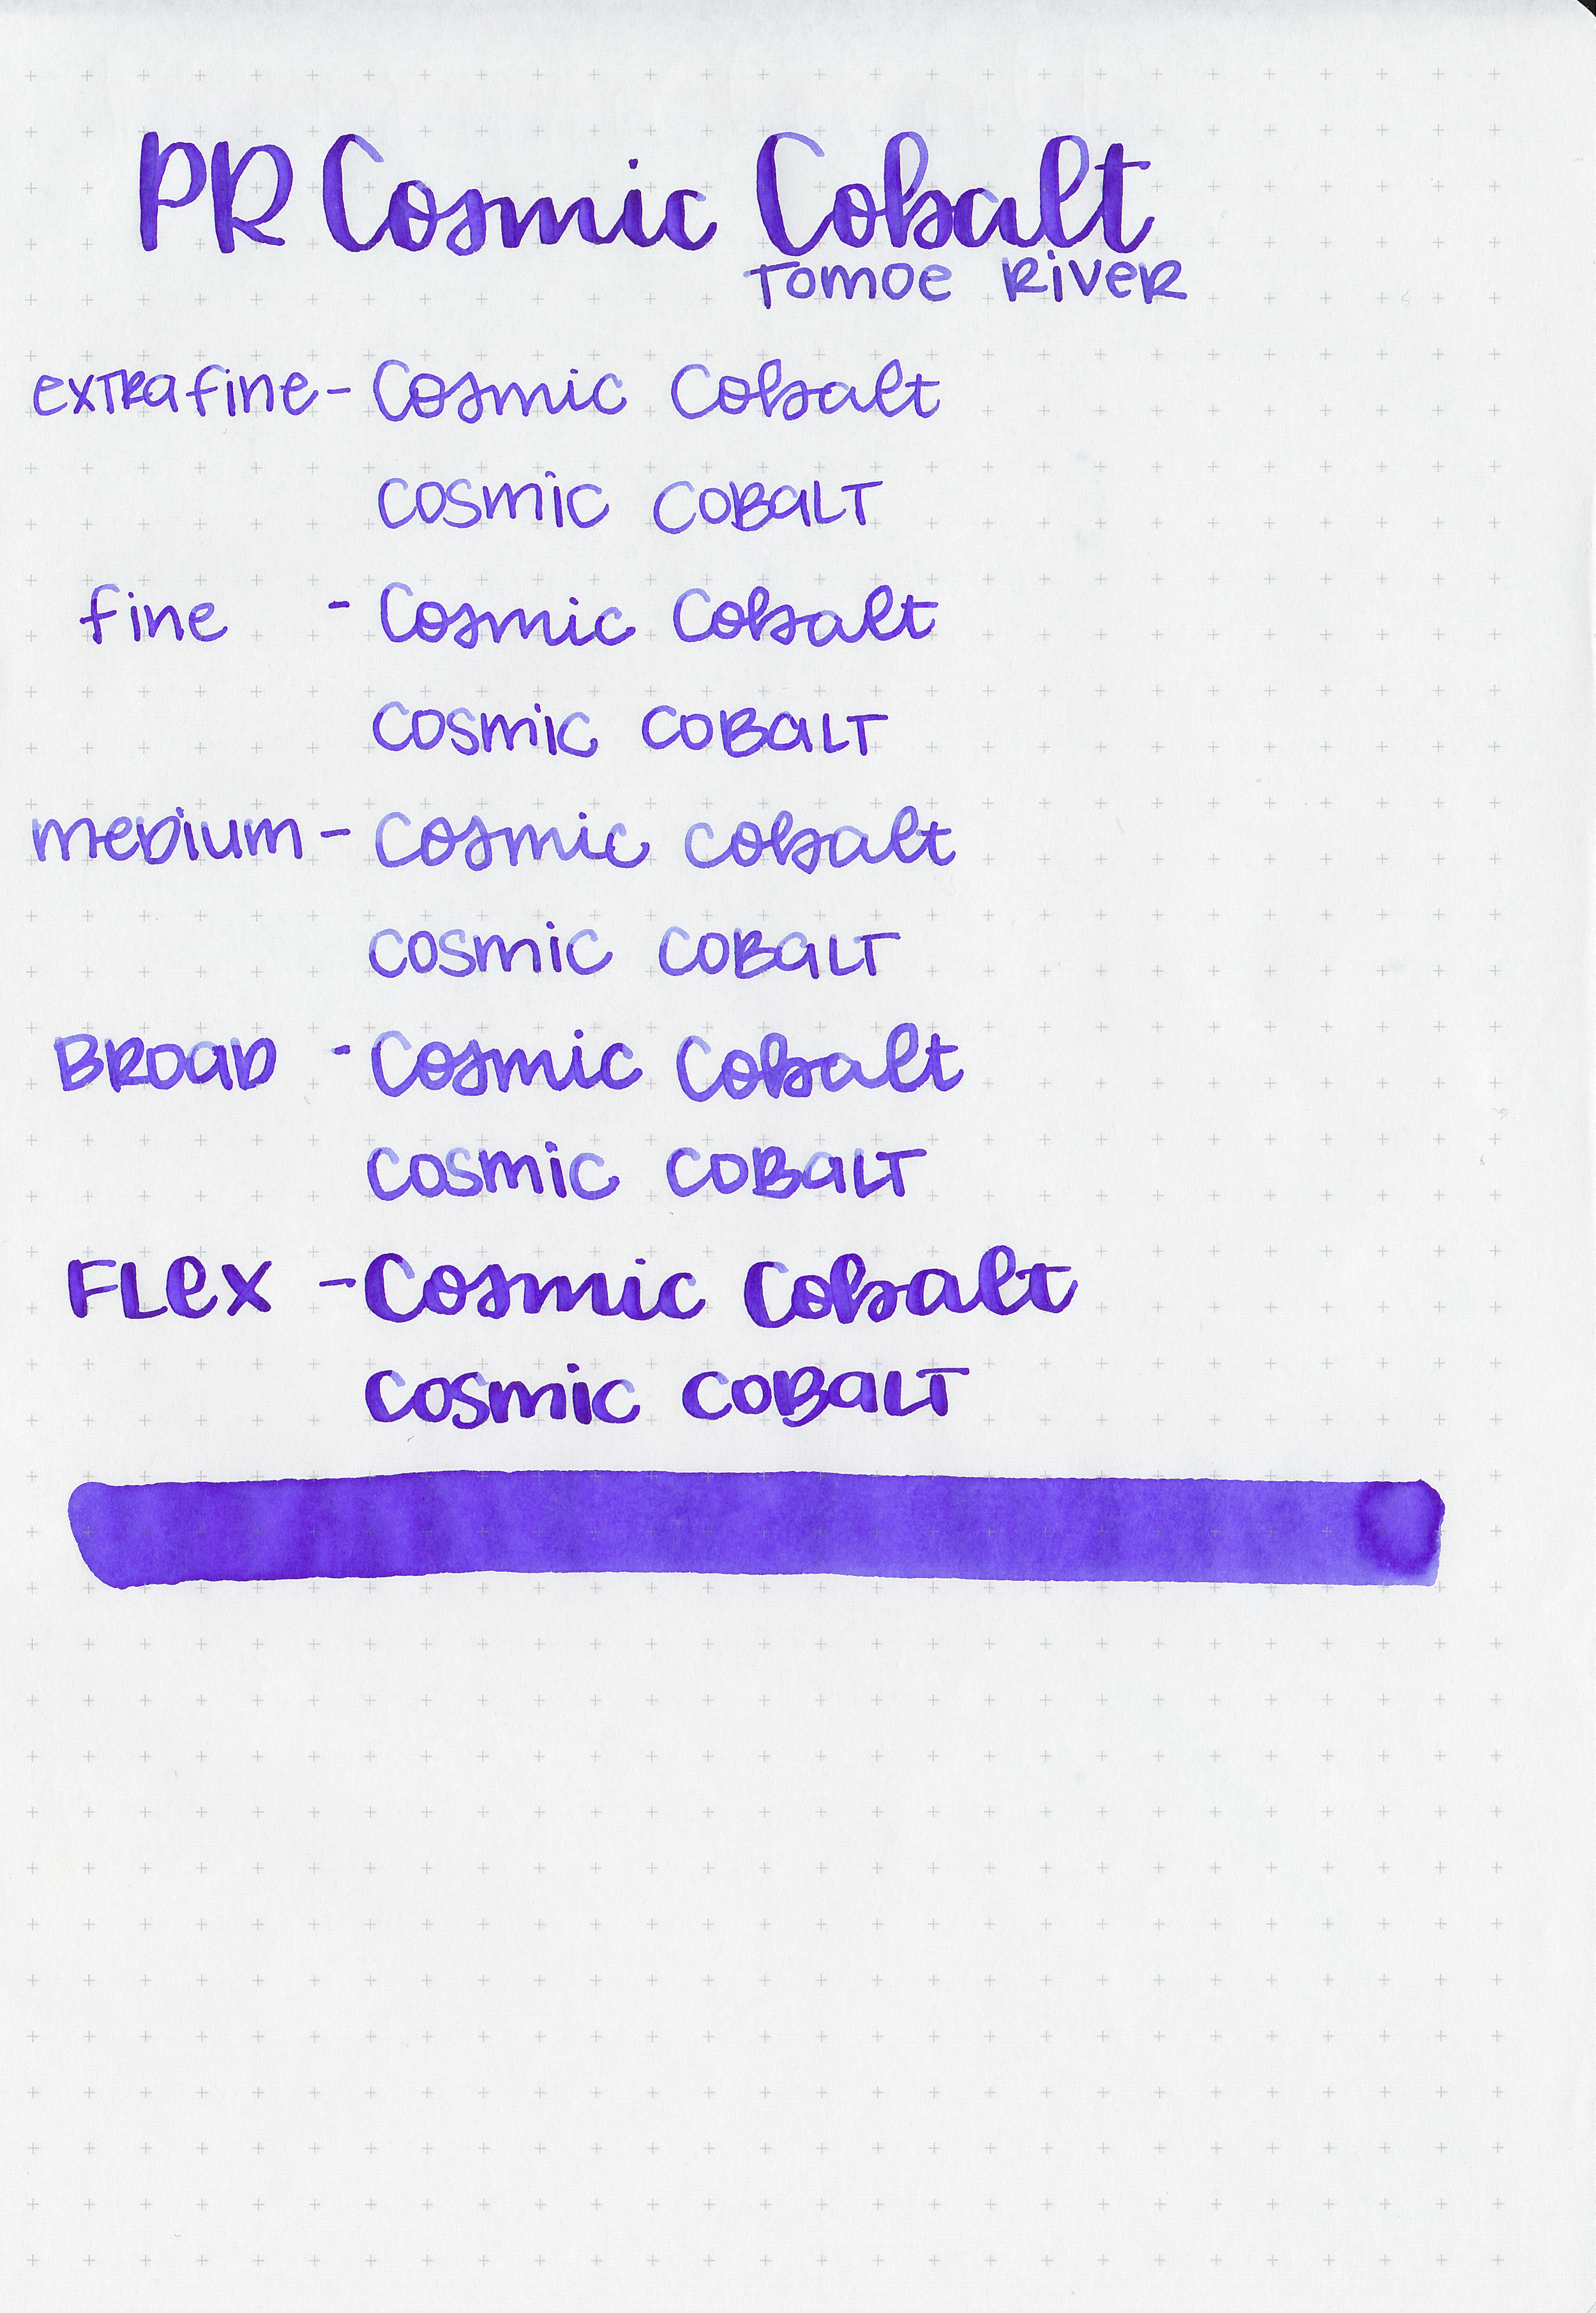 PR Cosmic Cobalt
Tomoe River
extra fine - Cosmic Cobalt
COSMIC COBALT
fine - Cosmic Cobalt
COSMIC COBALT
medium - Cosmic Cobalt
COSMIC COBALT
BROAD - Cosmic Cobalt
COSMIC COBALT
FLEX - Cosmic Cobalt
COSMIC COBALT